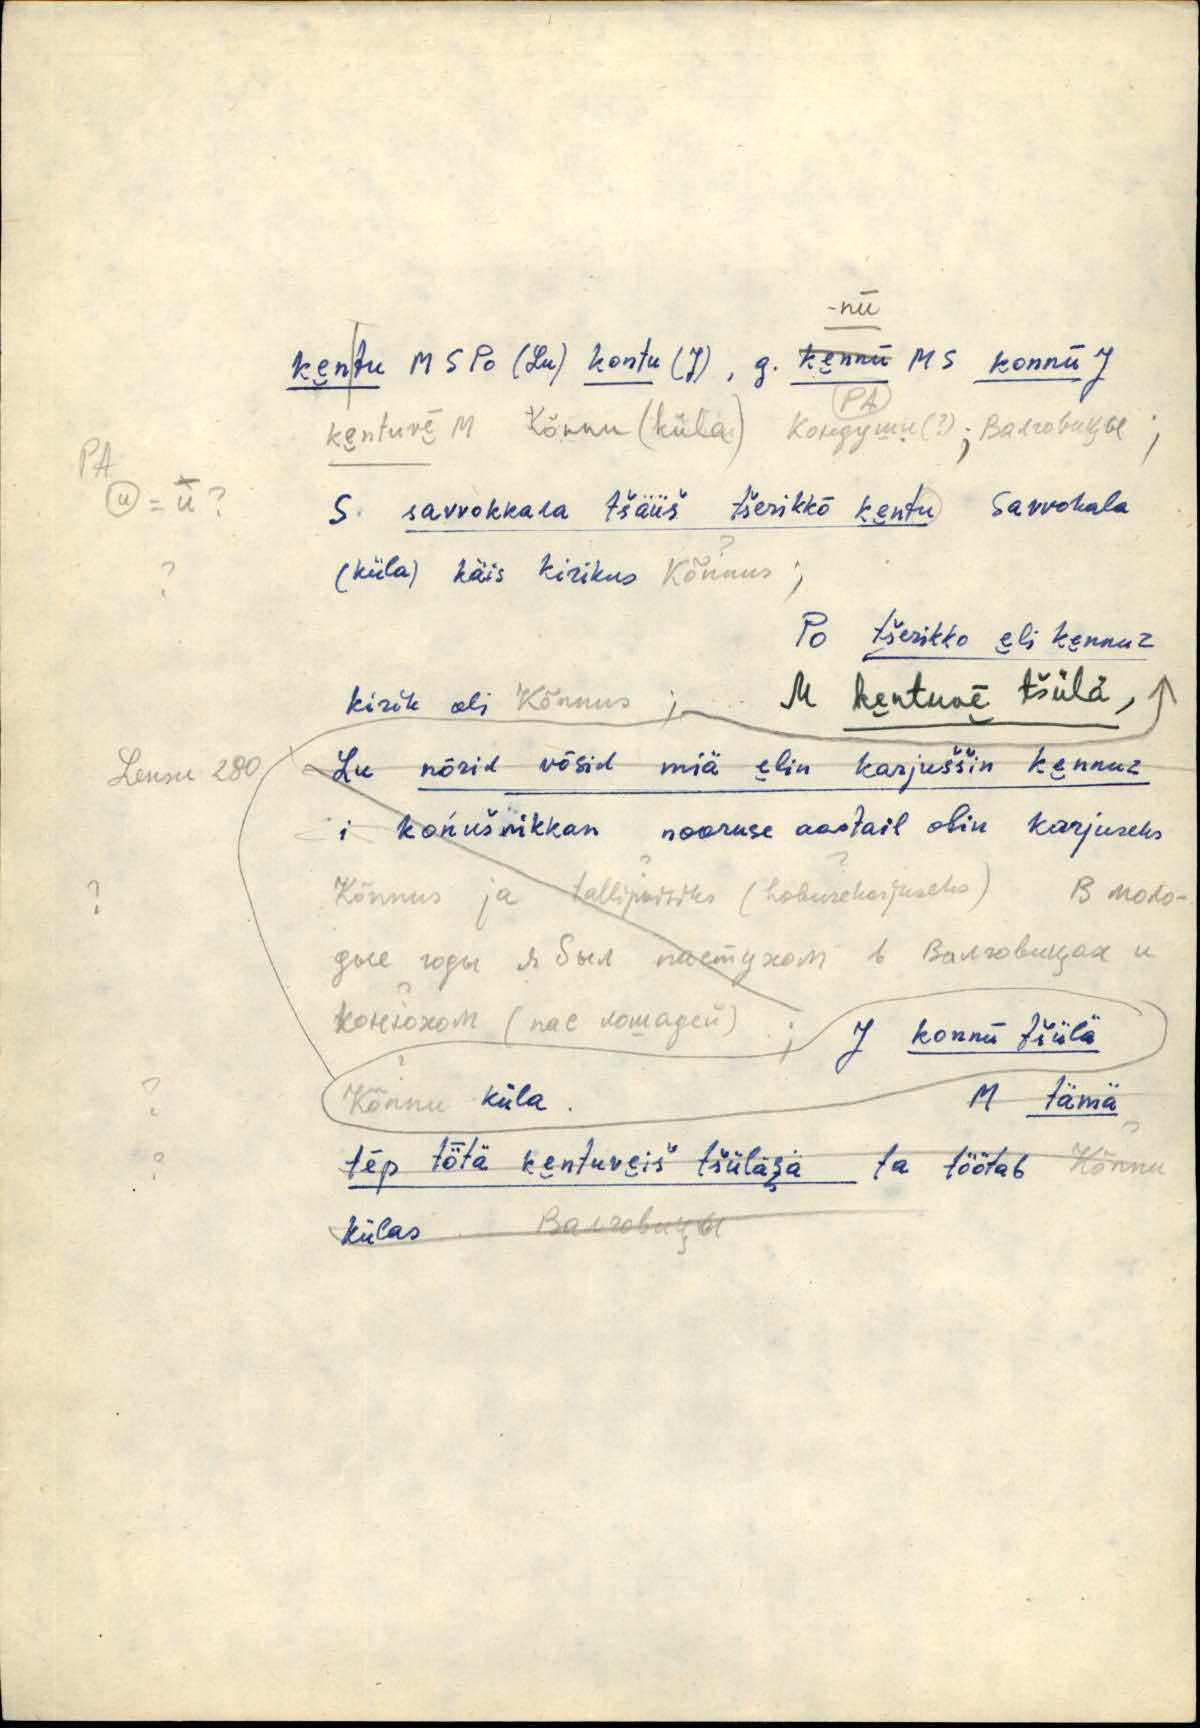 -nū
ke̮ntu M S Po (Lu) kontu (J), g. ke̮nnū MS konnū J
PA
ke̮ntuvē̮ M Kõnnu (küla) Кондуши (?); Валговицы ;
PA
u = ū ?
S savvokkaɫa tšäüš tšerikkō ke̮ntu Savvokala
?
? (küla) käis kirikus Kõnnus ;
Po tšerikko e̮li ke̮nnuz
kirik oli Kõnnus ; M ke̮ntuvē̮ tšülä,
Lensu 280 Lu nōrid vōsid miä e̮lin karjuššin ke̮nnuz
i końušńikkan nooruse aastail olin karjuseks
? ?
? Kõnnus ja tallipoisiks (hobusekarjuseks) В моло-
дые годы я был пастухом в Валговицах и
?
конюхом (пас лошадей) ; J konnū tšülä
?
? Kõnnu küla. M tämä
?
? tē̮p tȫtä ke̮ntuve̮iš tšüläzä ta töötab Kõnnu
külas Валговицы